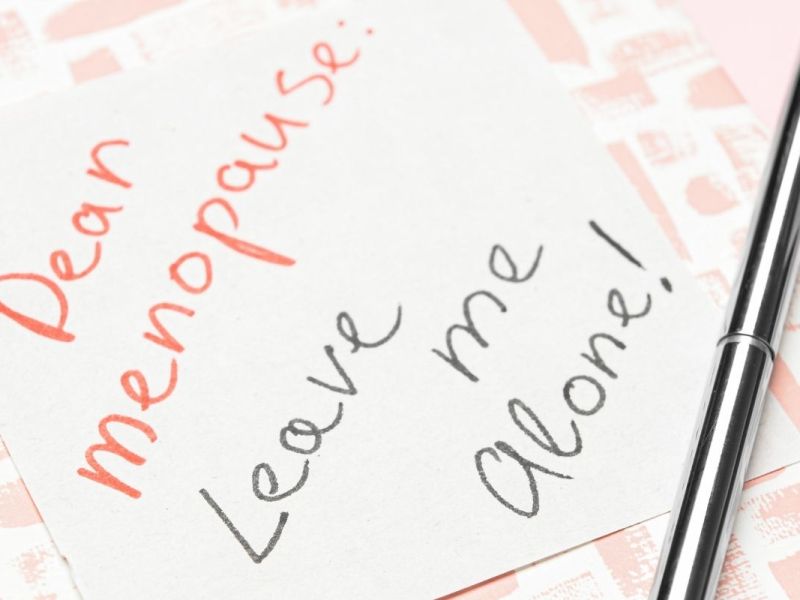 Dear
menopause:
Leave
me
alone!